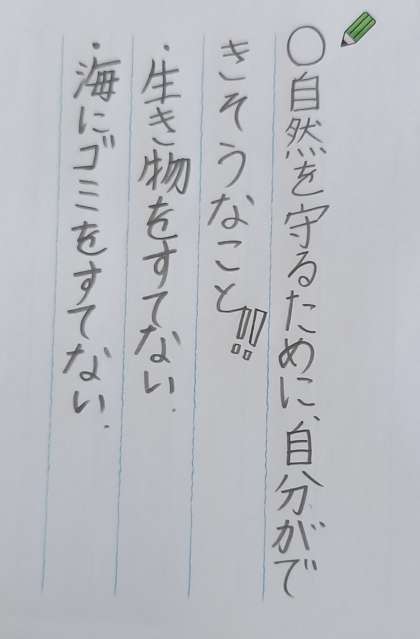 ○自然を守るために、自分がで
きそうなこと!!
・生き物をすてない.
・海にゴミをすてない.